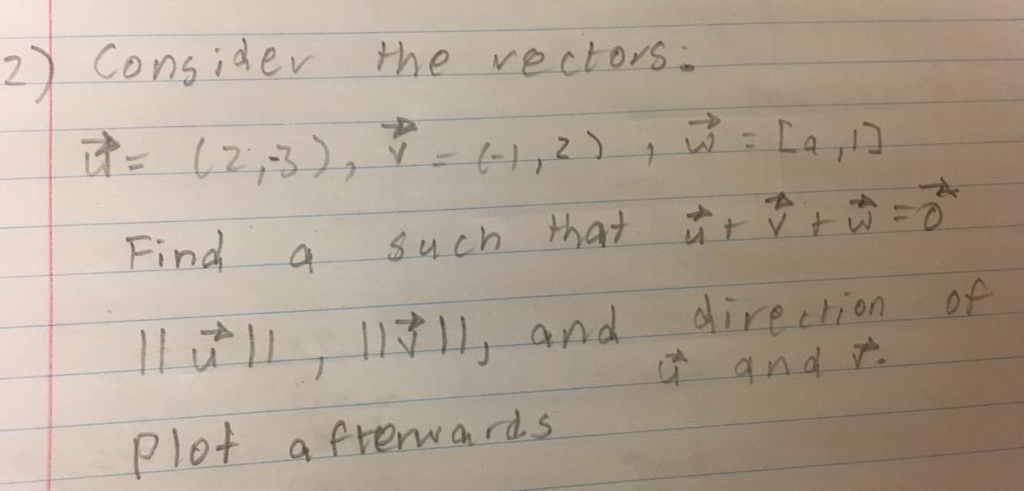 2) Consider the vectors:
u⃗ = (2,-3), v⃗ = (-1,2), w⃗ = [a,1]
Find a such that u⃗ + v⃗ + w⃗ = 0⃗
||u⃗||, ||v⃗||, and direction of
u⃗ and v⃗.
plot afterwards